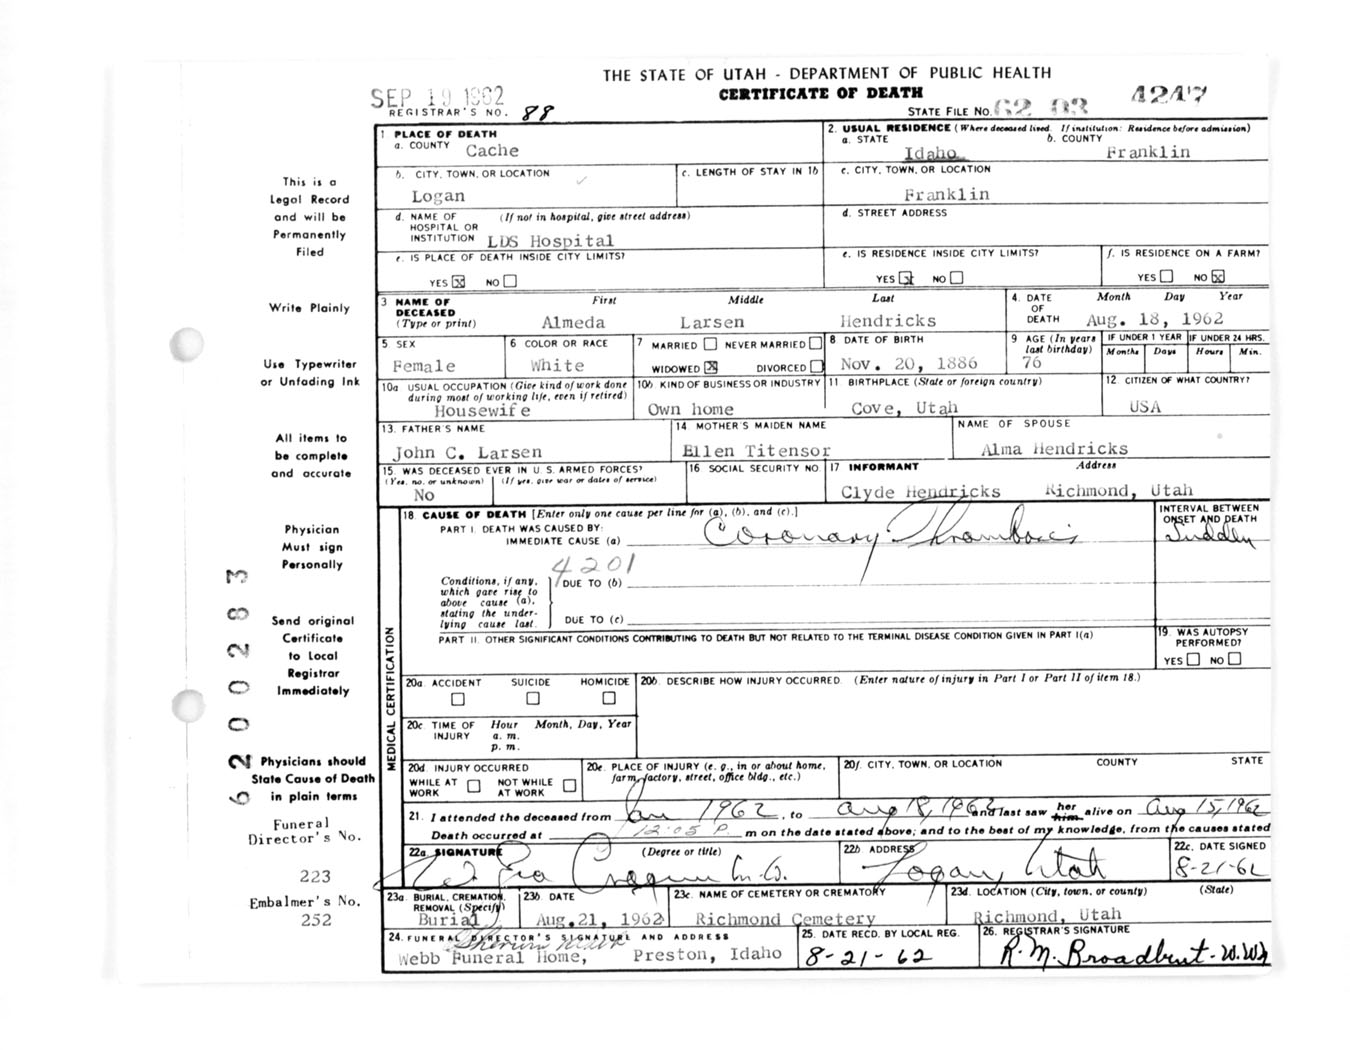 THE STATE OF UTAH - DEPARTMENT OF PUBLIC HEALTH
SEP 19 1962
CERTIFICATE OF DEATH
REGISTRAR'S NO. 88
STATE FILE NO. 62 03 4247
1 PLACE OF DEATH
a. COUNTY Cache
2. USUAL RESIDENCE (Where deceased lived. If institution: Residence before admission)
a. STATE Idaho b. COUNTY Franklin
b. CITY, TOWN, OR LOCATION Logan
c. LENGTH OF STAY IN 1b
c. CITY, TOWN, OR LOCATION Franklin
d. NAME OF HOSPITAL OR INSTITUTION (If not in hospital, give street address) LDS Hospital
d. STREET ADDRESS
e. IS PLACE OF DEATH INSIDE CITY LIMITS?
YES X NO
e. IS RESIDENCE INSIDE CITY LIMITS?
YES X NO
f. IS RESIDENCE ON A FARM?
YES NO X
3 NAME OF DECEASED (Type or print) First Middle Last
Almeda Larsen Hendricks
4. DATE OF DEATH Month Day Year
Aug. 18, 1962
5 SEX Female
6 COLOR OR RACE White
7 MARRIED NEVER MARRIED
WIDOWED X DIVORCED
8 DATE OF BIRTH Nov. 20, 1886
9 AGE (In years last birthday) 76
IF UNDER 1 YEAR Months Days
IF UNDER 24 HRS. Hours Min.
10a USUAL OCCUPATION (Give kind of work done during most of working life, even if retired) Housewife
10b KIND OF BUSINESS OR INDUSTRY Own home
11 BIRTHPLACE (State or foreign country) Cove, Utah
12 CITIZEN OF WHAT COUNTRY? USA
13. FATHER'S NAME John C. Larsen
14 MOTHER'S MAIDEN NAME Ellen Titensor
NAME OF SPOUSE Alma Hendricks
15. WAS DECEASED EVER IN U.S. ARMED FORCES?
(Yes, no, or unknown) (If yes, give war or dates of service)
No
16 SOCIAL SECURITY NO.
17 INFORMANT Address
Clyde Hendricks Richmond, Utah
18. CAUSE OF DEATH [Enter only one cause per line for (a), (b), and (c).]
PART I. DEATH WAS CAUSED BY:
IMMEDIATE CAUSE (a) Coronary Thrombosis
INTERVAL BETWEEN ONSET AND DEATH
4201
Conditions, if any, which gave rise to above cause (a), stating the underlying cause last.
DUE TO (b)
DUE TO (c)
PART II. OTHER SIGNIFICANT CONDITIONS CONTRIBUTING TO DEATH BUT NOT RELATED TO THE TERMINAL DISEASE CONDITION GIVEN IN PART I(a)
19. WAS AUTOPSY PERFORMED?
YES NO
MEDICAL CERTIFICATION
20a. ACCIDENT SUICIDE HOMICIDE
20b. DESCRIBE HOW INJURY OCCURRED. (Enter nature of injury in Part I or Part II of item 18.)
20c. TIME OF INJURY Hour Month, Day, Year
a. m.
p. m.
20d. INJURY OCCURRED
WHILE AT WORK NOT WHILE AT WORK
20e. PLACE OF INJURY (e. g., in or about home, farm, factory, street, office bldg., etc.)
20f. CITY, TOWN, OR LOCATION COUNTY STATE
21. I attended the deceased from Jan 1962, to Aug 18, 1962 and last saw her him alive on Aug 15, 1962
Death occurred at 12:05 P. m on the date stated above; and to the best of my knowledge, from the causes stated
22a. SIGNATURE (Degree or title)
M.D.
22b ADDRESS Logan, Utah
22c. DATE SIGNED 8-21-62
23a. BURIAL, CREMATION, REMOVAL (Specify) Burial
23b. DATE Aug. 21, 1962
23c. NAME OF CEMETERY OR CREMATORY Richmond Cemetery
23d. LOCATION (City, town, or county) (State)
Richmond, Utah
24. FUNERAL DIRECTOR'S SIGNATURE AND ADDRESS
Webb Funeral Home, Preston, Idaho
25. DATE RECD. BY LOCAL REG. 8-21-62
26. REGISTRAR'S SIGNATURE
R. M. Broadbent - W.W.
This is a
Legal Record
and will be
Permanently
Filed
Write Plainly
Use Typewriter
or Unfading Ink
All items to
be complete
and accurate
Physician
Must sign
Personally
Send original
Certificate
to Local
Registrar
Immediately
Physicians should
State Cause of Death
in plain terms
Funeral
Director's No.
223
Embalmer's No.
252
62000283